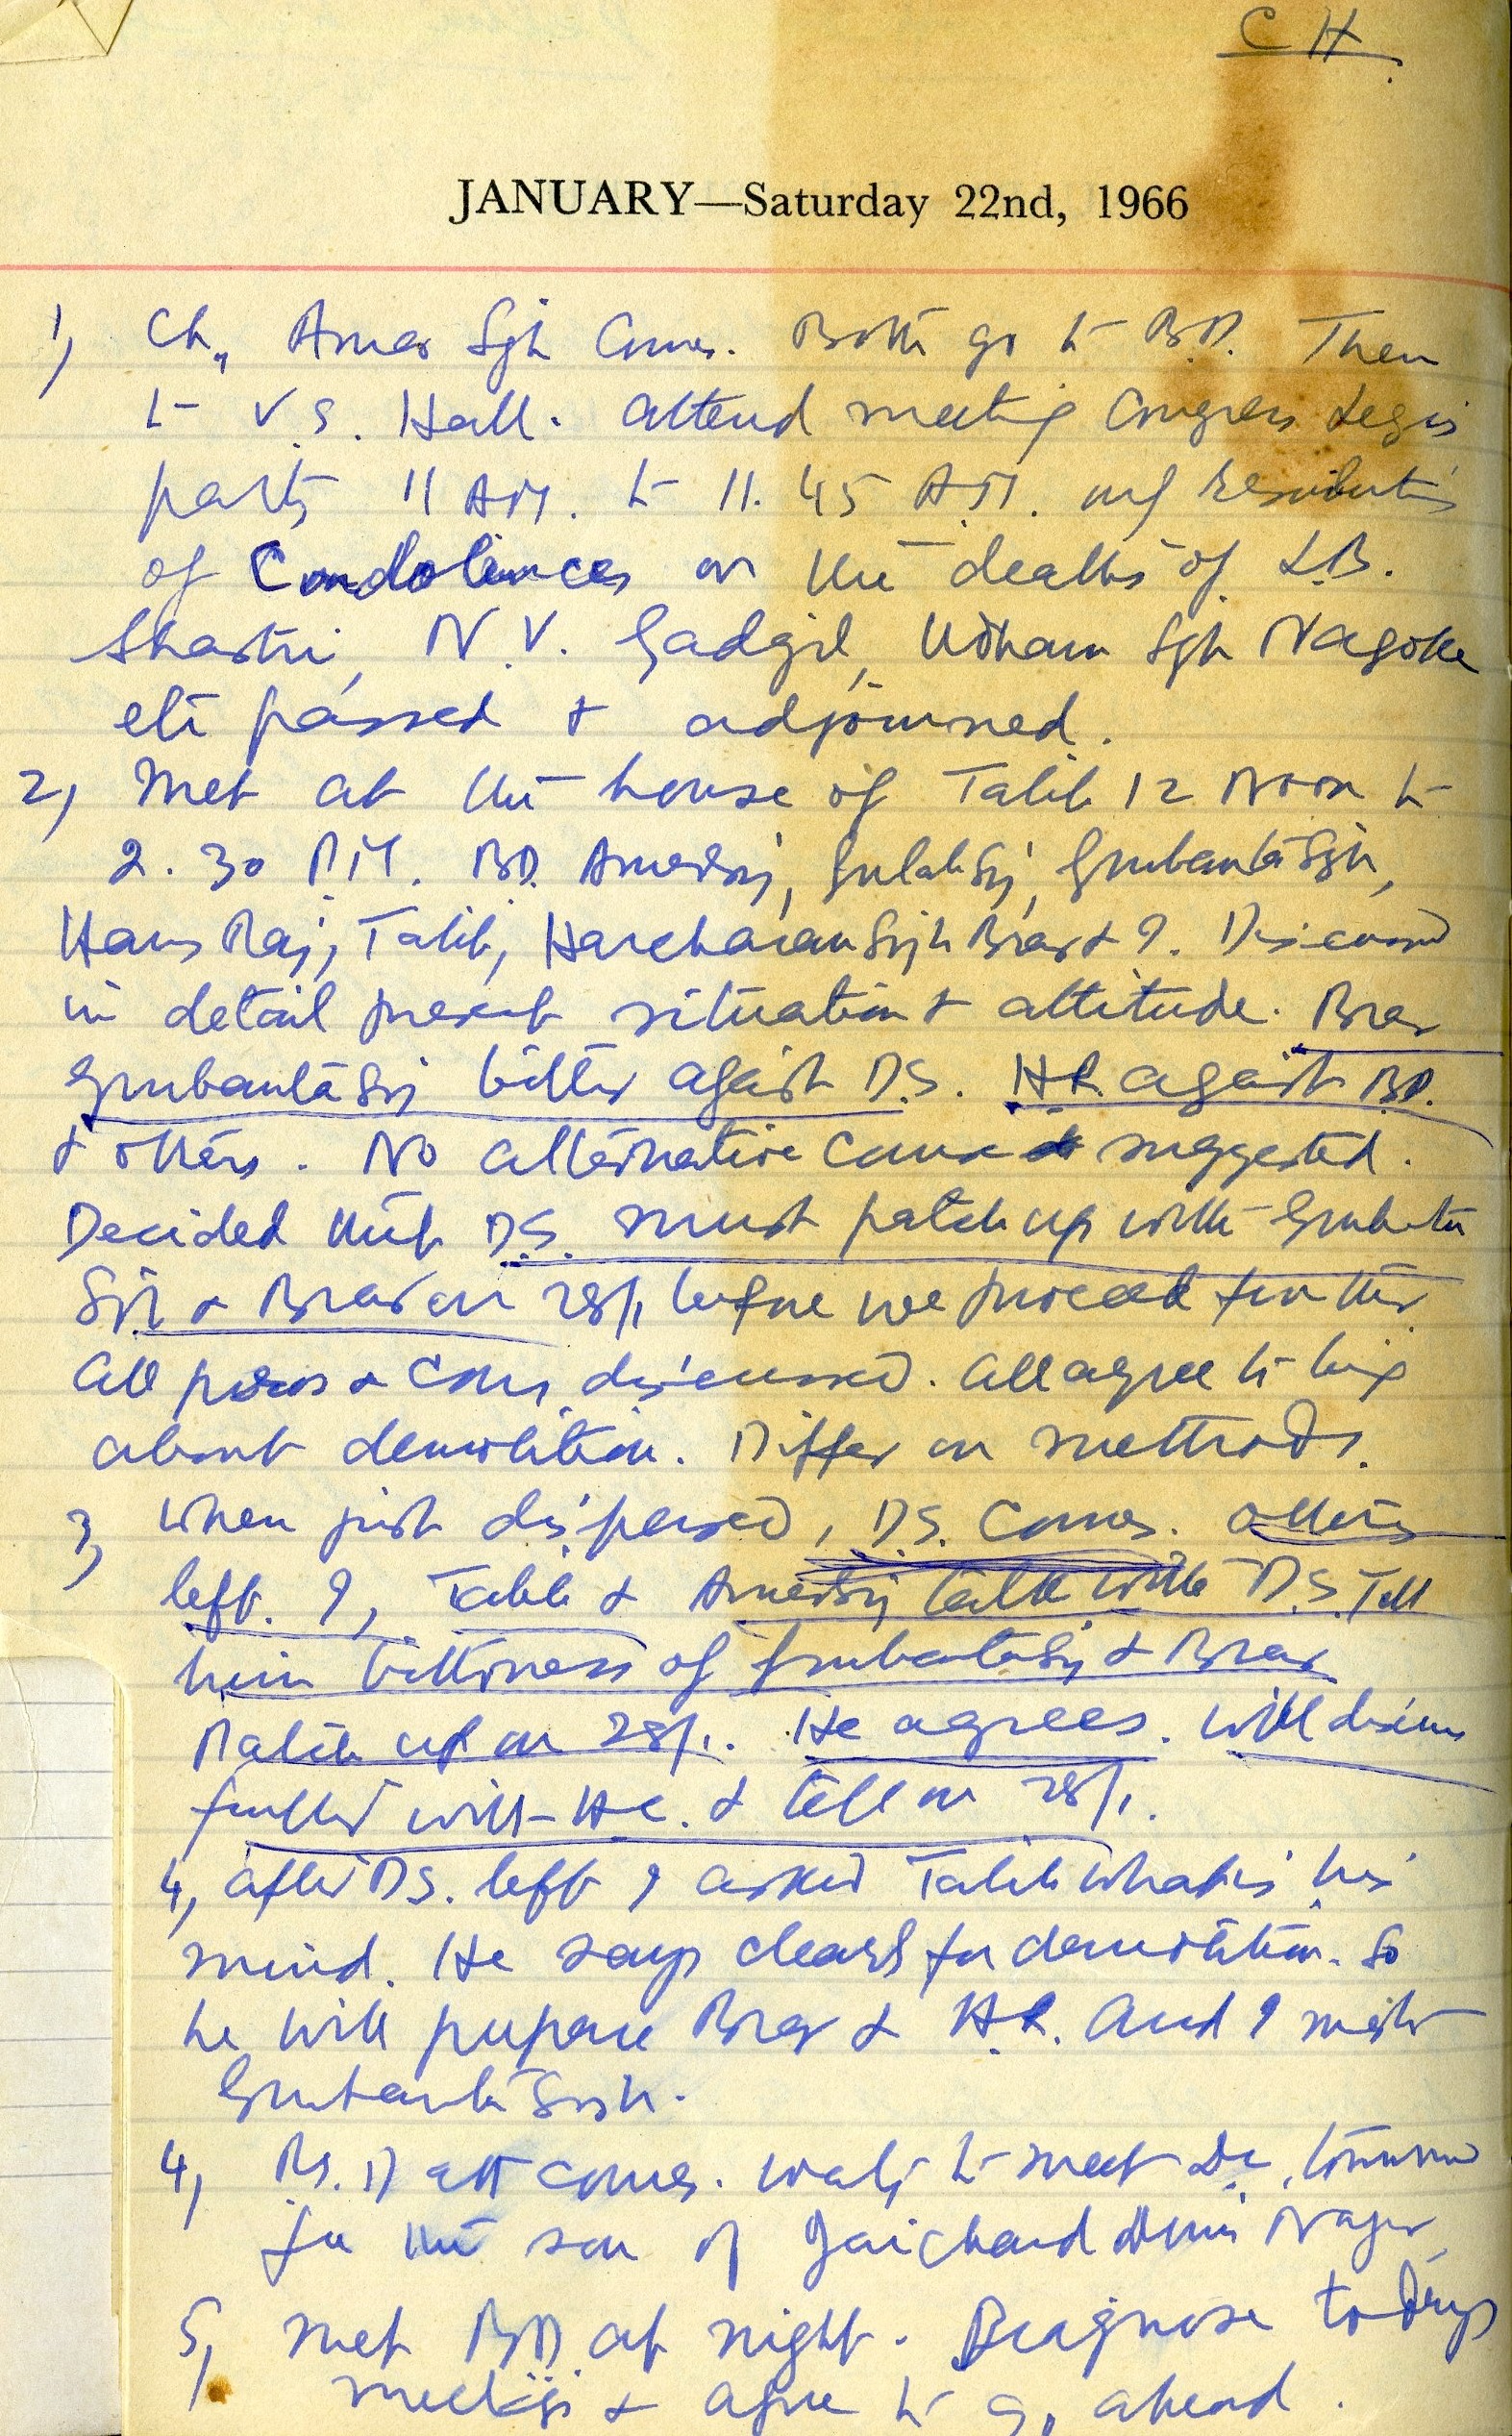 CH.
JANUARY—Saturday 22nd, 1966
1) Ch. Amar Sgh Comes. Both go to B.D. Then
to V.S. Hall. Attend meeting Congress Legis
party 11 AM. to 11.45 A.M. resolutions
of Condolences on the deaths of L.B.
Shastri, N.V. Gadgil, Udham Sgh Nagoke
etc passed & adjourned.
2) Met at the house of Talib 12 Noon to
2.30 P.M. BD. Gulab Sij, Gurbanta Sgh,
Hans Raj, Talib, Harcharan Sigh Brar & I. Discussed
in detail present situation & attitude. Brar
Gurbanta Sij bitter against D.S. H.R. against B.D.
& others. No alternative course suggested.
Decided that D.S. must patch up with Gurbanta
& Brar on 28/1 before we proceed further
All pros & cons discussed. All agree to
about demolition. Differ on methods.
3) When just dispersed, D.S. Comes. others
left. I, Talib & talk with D.S. Tell
him bitterness of Gurbanta Sij & Brar
Patch up on 28/1. He agrees. Will discuss
further with & tell on 28/1.
4, After D.S. left I asked Talib what is his
mind. He says clearly for demolition. So
he will prepare Brar & H.R. And I
Gurbanta Sigh.
4, Datt comes. to meet tomorrow
for the son of Jaichand Nagar
5, Met BD at night. Diagnose today's
meetings & agree to go ahead.